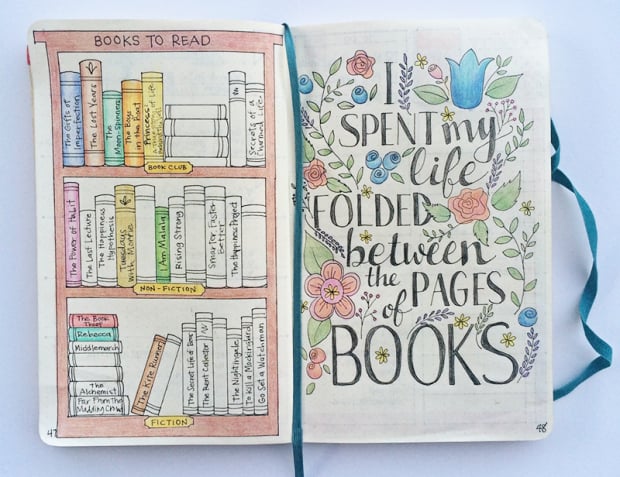 BOOKS TO READ
The Gifts of
Imperfection
The Last Years
The
Moon-Spinners
The Boys
in the Boat
Princess:
Secrets of a
BOOK CLUB
The Power of Habit
The Last Lecture
The Happiness
Hypothesis
Tuesdays
With Morrie
I Am Malala
Rising Strong
Smarter Faster
Better
The Happiness Project
NON-FICTION
The Book
Thief
Rebecca
Middlemarch
The
Alchemist
Far From The
Madding Crowd
The Kite Runner
The Secret Life of Bees
The Rent Collector
The Nightingale
To Kill a Mockingbird
Go Set a Watchman
FICTION
47
I
SPENT my
life
FOLDED
between
the PAGES
of
BOOKS
48